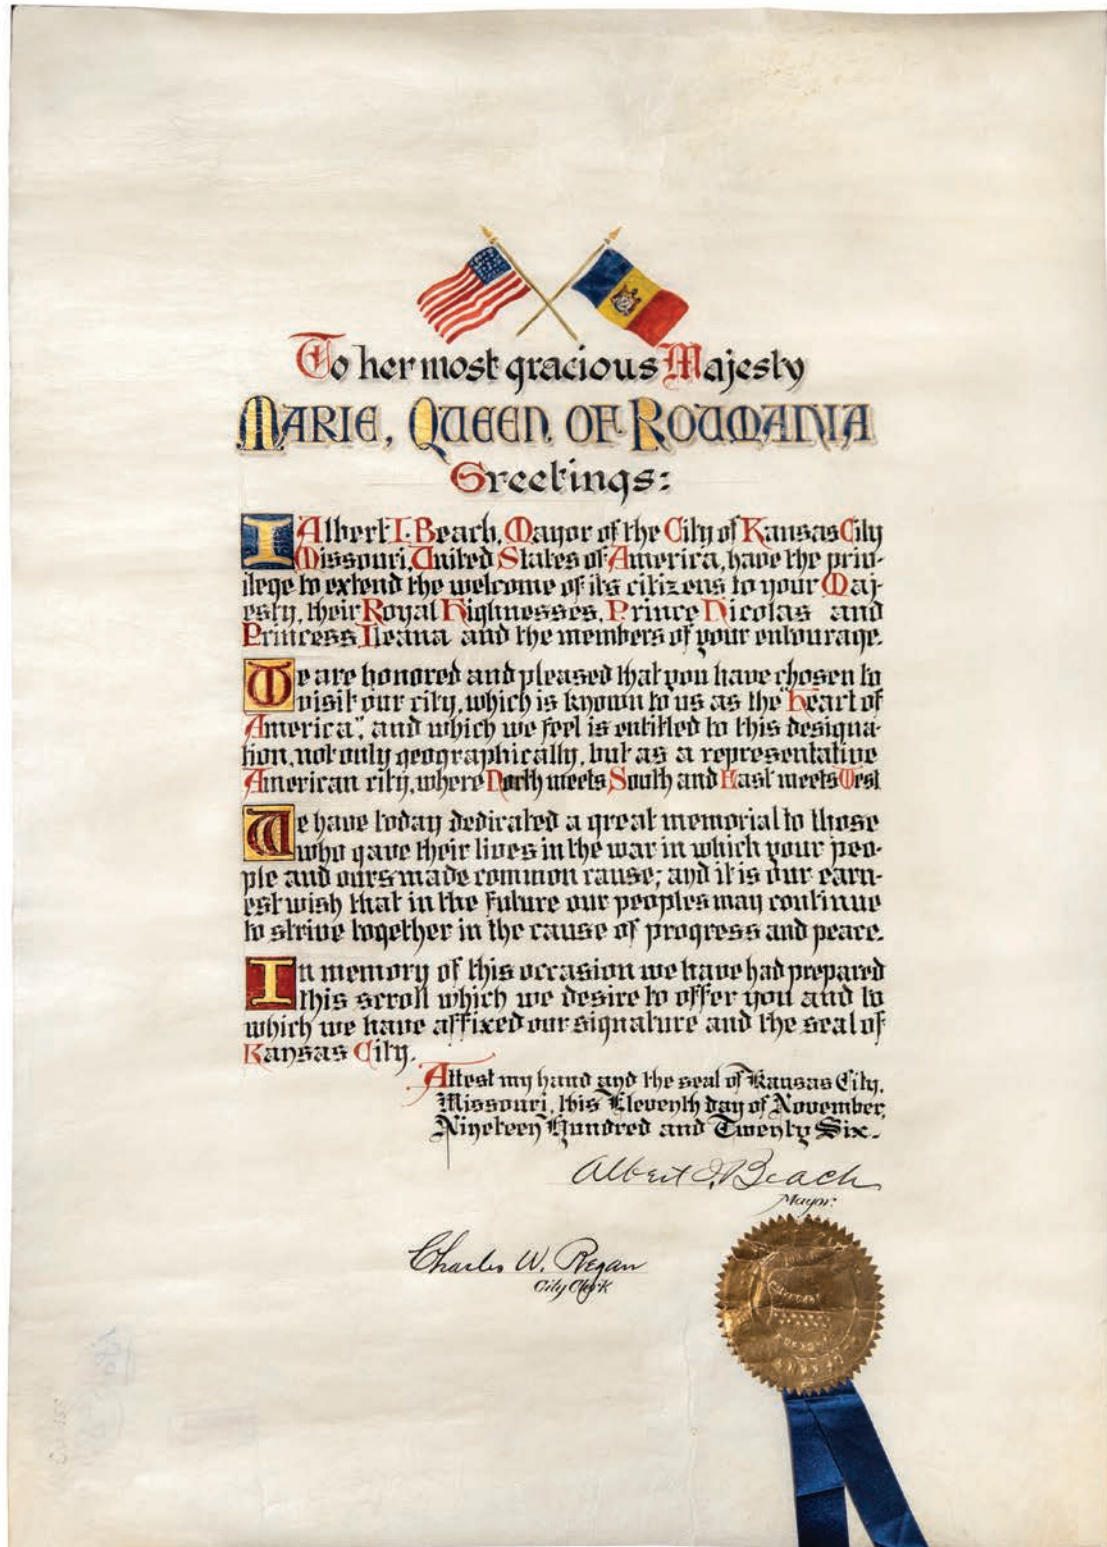 To her most gracious Majesty
MARIE, QUEEN OF ROUMANIA
Greetings:
I Albert I. Beach, Mayor of the City of Kansas City
Missouri, United States of America, have the priv-
ilege to extend the welcome of its citizens to your Maj-
esty, their Royal Highnesses, Prince Nicolas and
Princess Ileana and the members of your entourage.
We are honored and pleased that you have chosen to
visit our city, which is known to us as the "Heart of
America", and which we feel is entitled to this designa-
tion, not only geographically, but as a representative
American city, where North meets South and East meets West
We have today dedicated a great memorial to those
who gave their lives in the war in which your peo-
ple and ours made common cause; and it is our earn-
est wish that in the future our peoples may continue
to strive together in the cause of progress and peace.
In memory of this occasion we have had prepared
this scroll which we desire to offer you and to
which we have affixed our signature and the seal of
Kansas City.
Attest my hand and the seal of Kansas City,
Missouri, this Eleventh day of November,
Nineteen Hundred and Twenty Six.
Albert I. Beach
Mayor.
Charles W. Regan
City Clerk